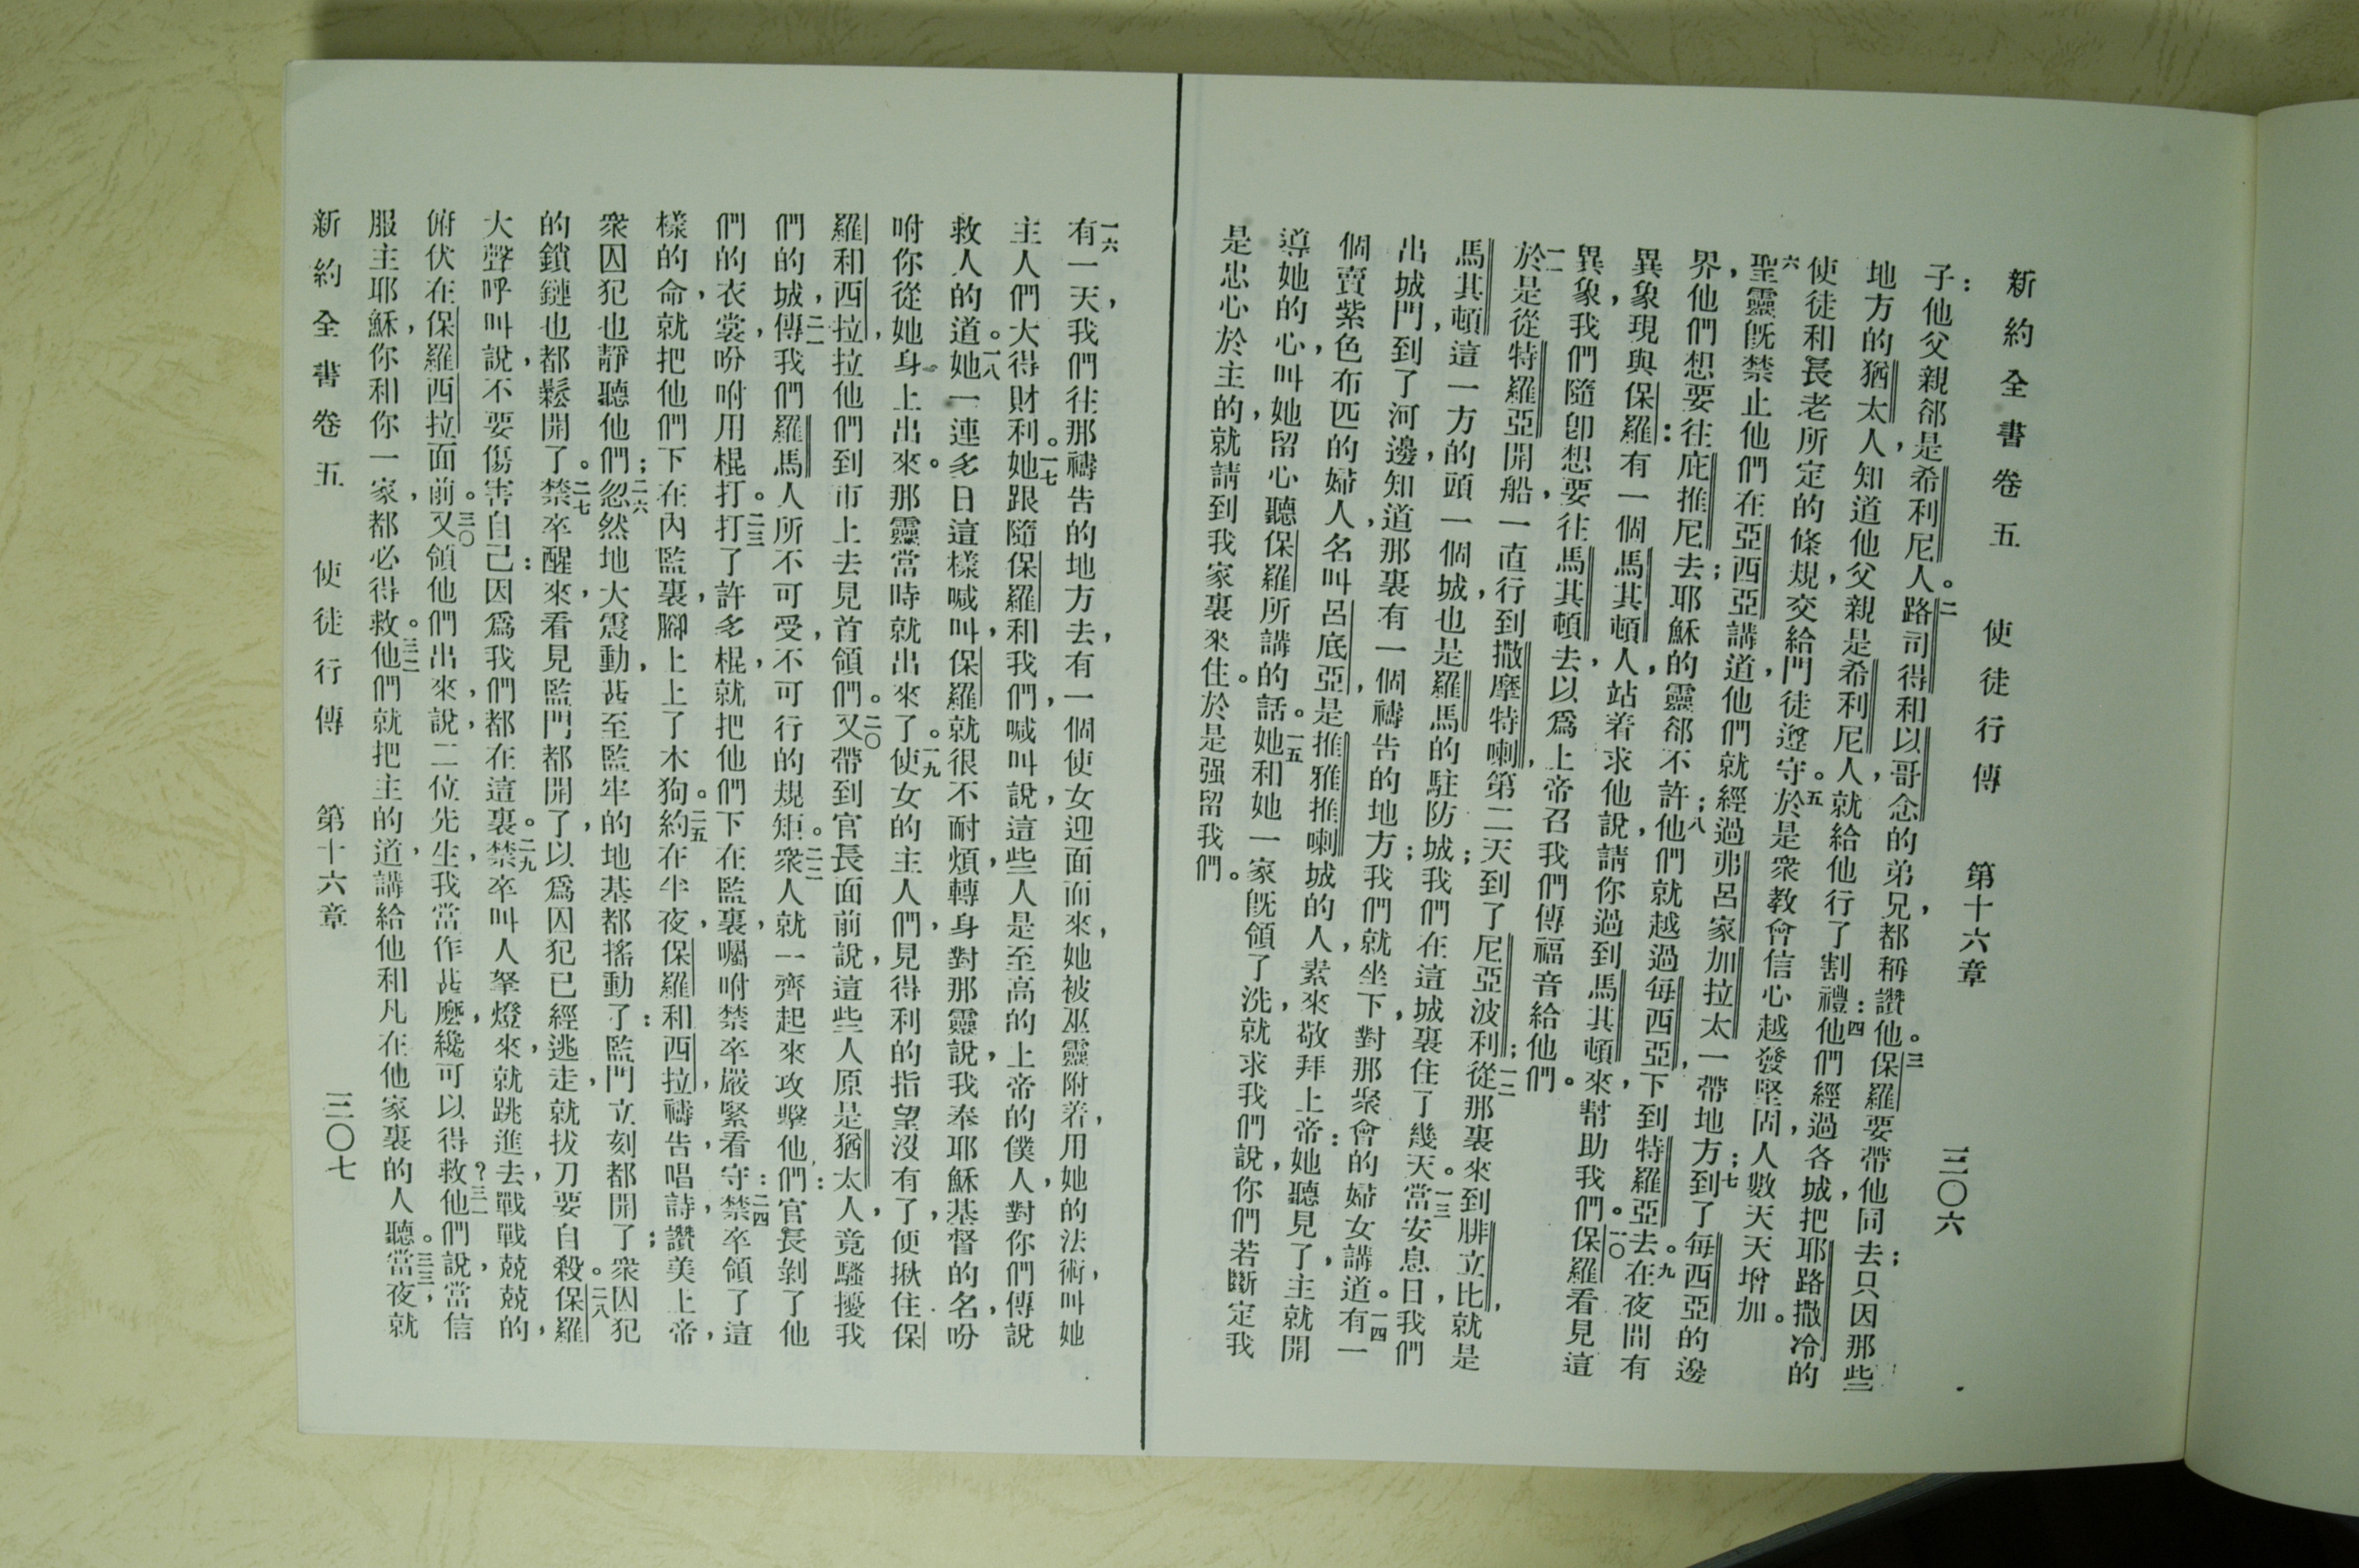 新約全書卷五 使徒行傳 第十六章 三〇六
子：他父親郤是希利尼人。二路司得和以哥念的弟兄，都稱讚他。三保羅要帶他同去；只因那些
地方的猶太人，知道他父親是希利尼人，就給他行了割禮：四他們經過各城，把耶路撒冷的
使徒和長老所定的條規，交給門徒遵守。五於是衆教會信心越發堅固，人數天天增加。
六聖靈旣禁止他們在亞西亞講道，他們就經過弗呂家加拉太一帶地方；七到了每西亞的邊
界，他們想要往庇推尼去；耶穌的靈郤不許；八他們就越過每西亞，下到特羅亞去。九在夜間有
異象現與保羅：有一個馬其頓人，站着求他說，請你過到馬其頓來，幫助我們。一〇保羅看見這
異象，我們隨卽想要往馬其頓去，以爲上帝召我們傳福音給他們。
一一於是從特羅亞開船，一直行到撒摩特喇，第二天到了尼亞波利；一二從那裏來到腓立比，就是
馬其頓這一方的頭一個城，也是羅馬的駐防城；我們在這城裏住了幾天。一三當安息日，我們
出城門，到了河邊，知道那裏有一個禱告的地方；我們就坐下，對那聚會的婦女講道。一四有一
個賣紫色布匹的婦人，名叫呂底亞，是推雅推喇城的人，素來敬拜上帝：她聽見了，主就開
導她的心，叫她留心聽保羅所講的話。一五她和她一家旣領了洗，就求我們說，你們若斷定我
是忠心於主的，就請到我家裏來住。於是强留我們。
一六有一天，我們往那禱告的地方去，有一個使女迎面而來，她被巫靈附着，用她的法術，叫她
主人們大得財利。一七她跟隨保羅和我們，喊叫說，這些人是至高的上帝的僕人，對你們傳說
救人的道。一八她一連多日這樣喊叫，保羅就很不耐煩，轉身對那靈說，我奉耶穌基督的名，吩
咐你從她身上出來。那靈當時就出來了。一九使女的主人們，見得利的指望沒有了，便揪住保
羅和西拉，拉他們到市上去見首領們。二〇又帶到官長面前說，這些人原是猶太人，竟騷擾我
們的城，二一傳我們羅馬人所不可受，不可行的規矩。二二衆人就一齊起來攻擊他們：官長剝了他
們的衣裳，吩咐用棍打。二三打了許多棍，就把他們下在監裏，囑咐禁卒嚴緊看守：二四禁卒領了這
樣的命，就把他們下在內監裏，腳上上了木狗。二五約在半夜，保羅和西拉，禱告，唱詩，讚美上帝，
衆囚犯也靜聽他們；二六忽然地大震動，甚至監牢的地基都搖動了：監門立刻都開了；衆囚犯
的鎖鏈也都鬆開了。二七禁卒醒來，看見監門都開了，以爲囚犯已經逃走，就拔刀要自殺。二八保羅
大聲呼叫說，不要傷害自己：因爲我們都在這裏。二九禁卒叫人拏燈來，就跳進去，戰戰兢兢的，
俯伏在保羅西拉面前。三〇又領他們出來，說，二位先生，我當作甚麽，纔可以得救？三一他們說，當信
服主耶穌，你和你一家，都必得救。三二他們就把主的道，講給他和凡在他家裏的人聽。三三當夜，就
新約全書卷五 使徒行傳 第十六章 三〇七